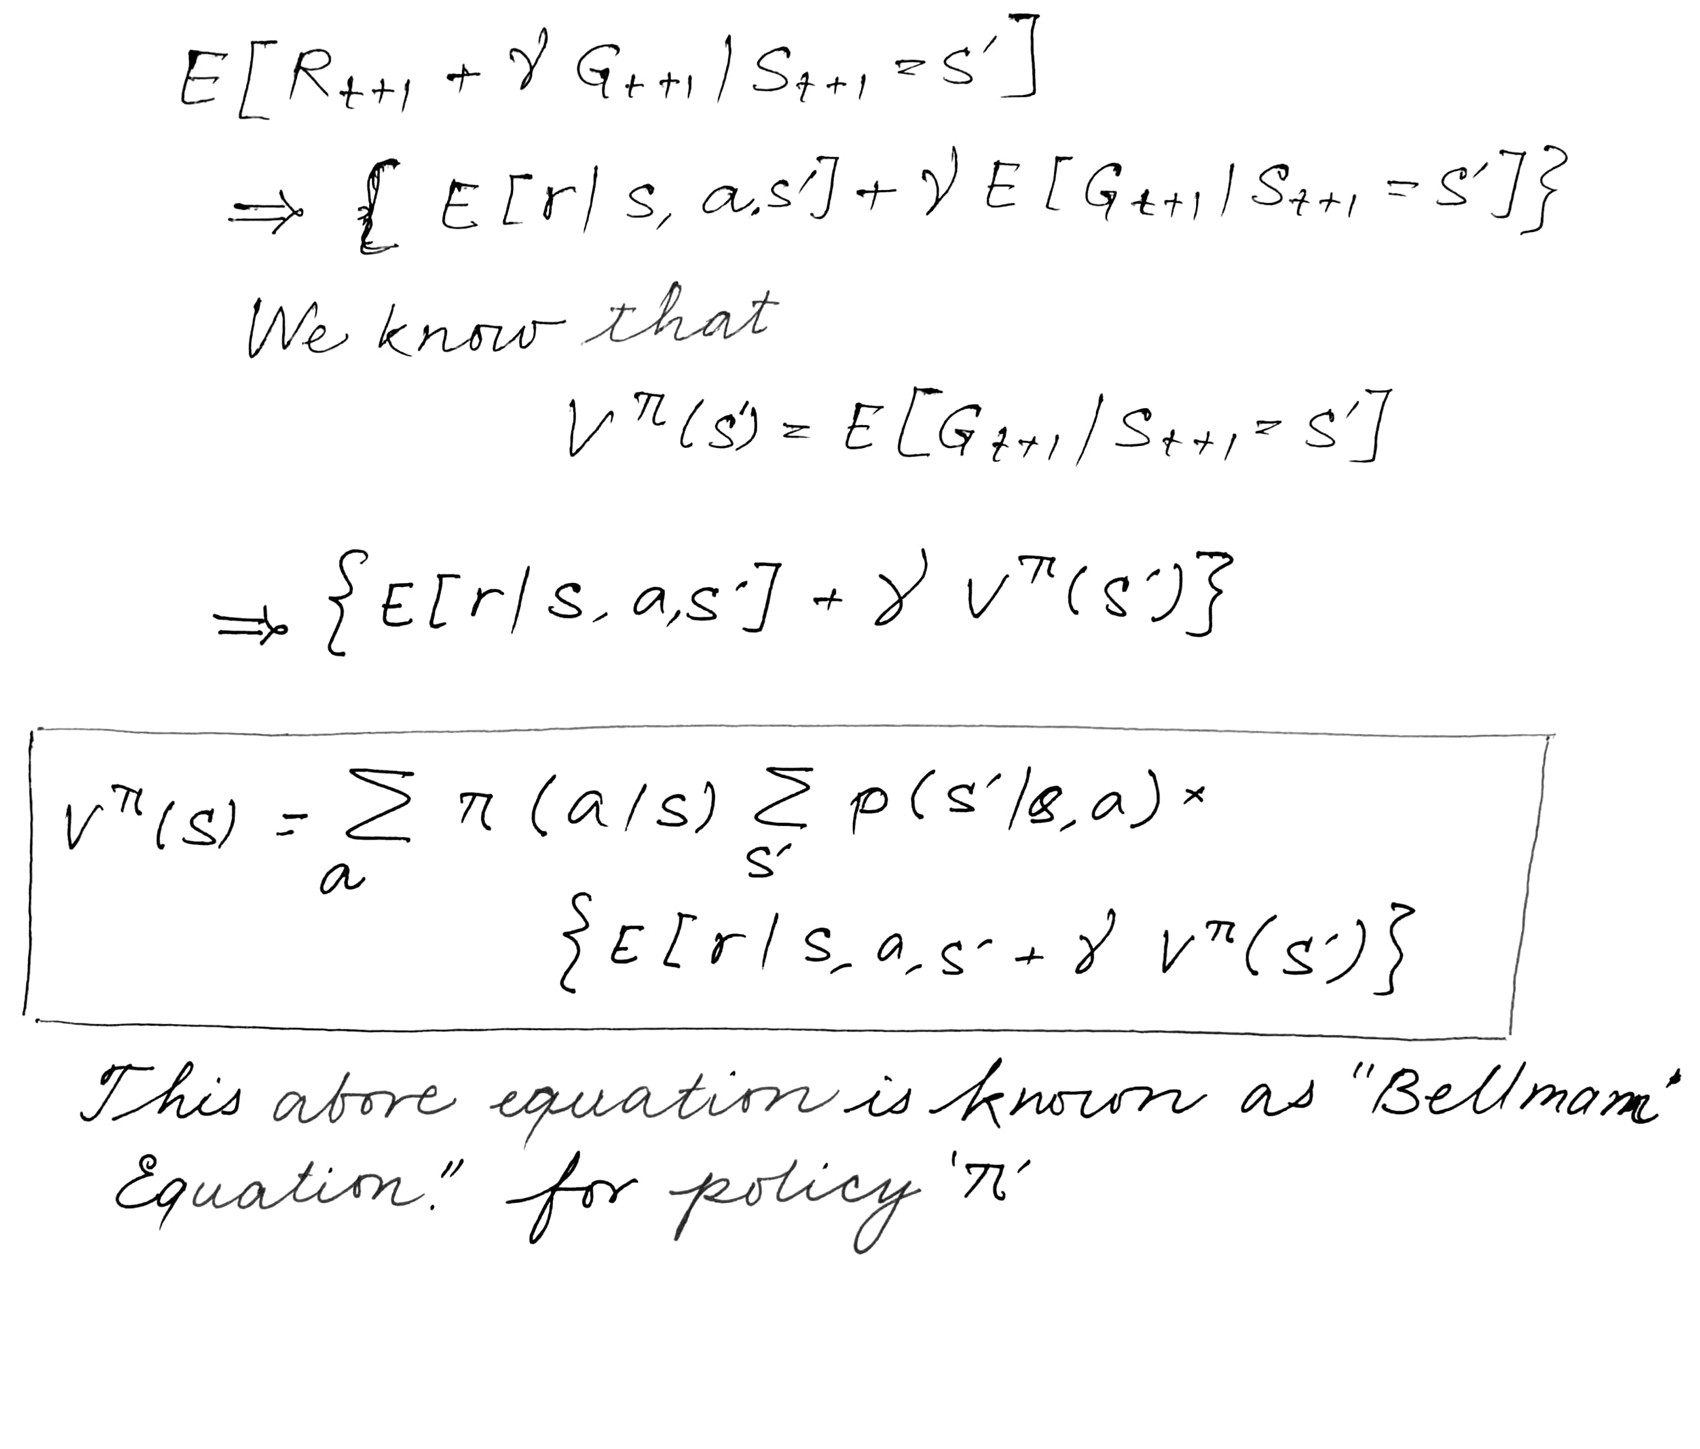 E[R_{t+1} + γ G_{t+1} | S_{t+1} = s′]
⇒ { E[r | s, a, s′] + γ E[G_{t+1} | S_{t+1} = s′]}
We know that
V^π(s′) = E[G_{t+1} / S_{t+1} = s′]
⇒ {E[r | s, a, s′] + γ V^π(s′)}
V^π(s) = Σ_a π(a/s) Σ_{s′} p(s′/s, a) ×
{E[r | s, a, s′ + γ V^π(s′)}
This above equation is known as "Bellmam
Equation." for policy 'π'